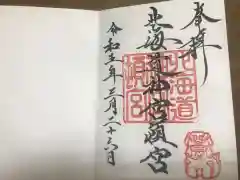 奉拝
北海道神宮頓宮
北海道
頓宮
令和五年三月二十六日